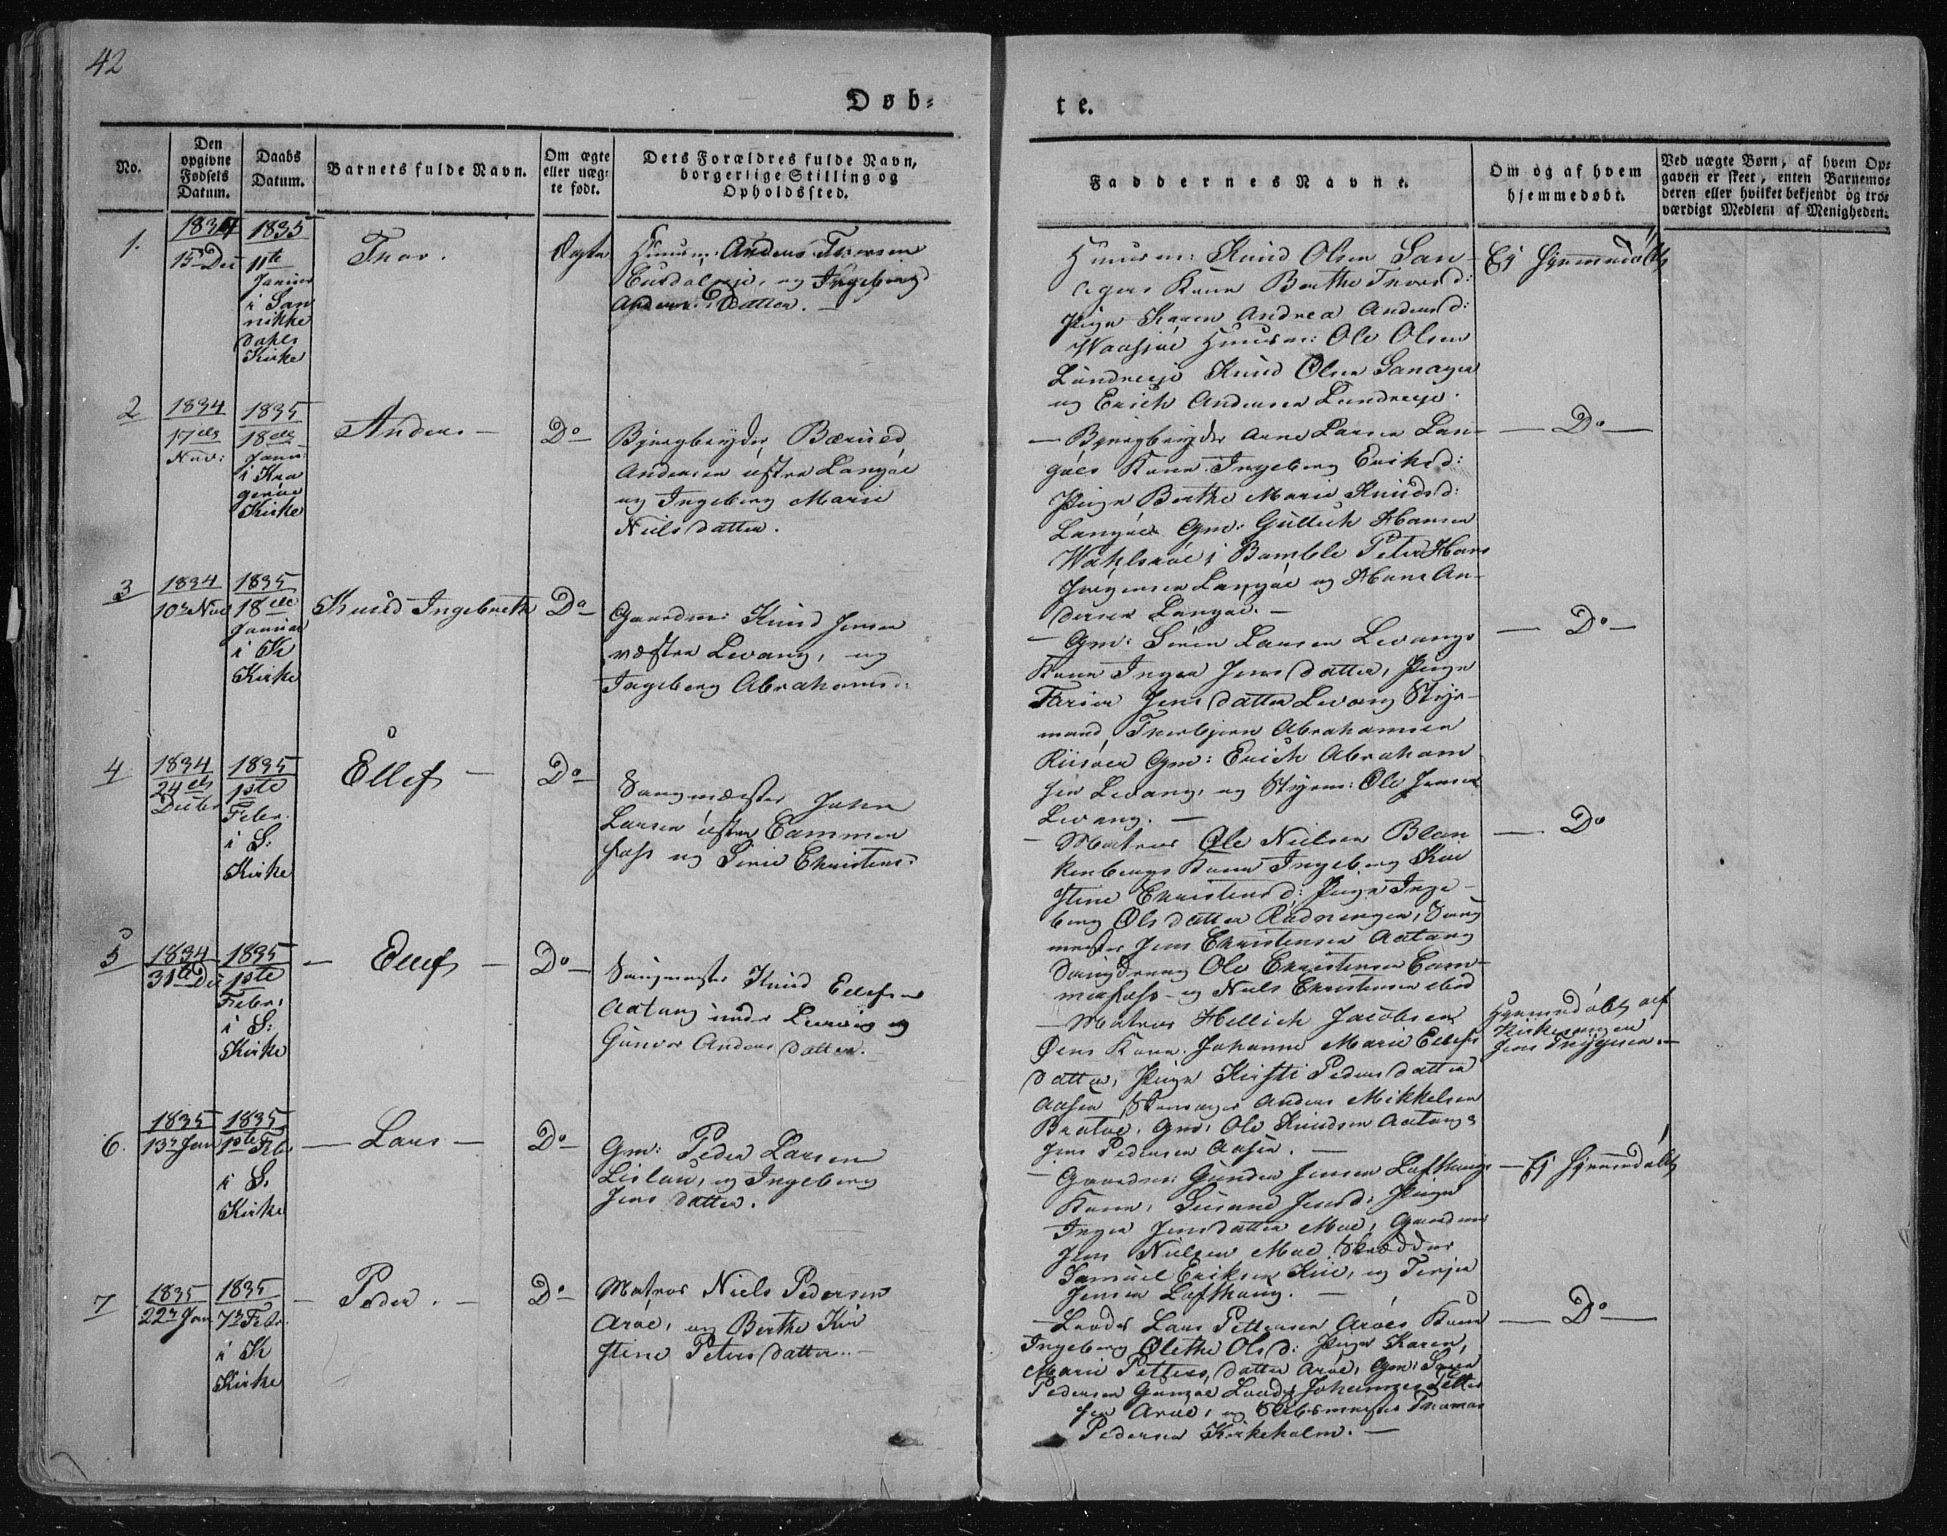 42
Døb=
te.
No.
Den opgivne Fødsels Datum.
Daabs Datum.
Barnets fulde Navn.
Om ægte eller uæg= te født.
Dets Forældres fulde Navn, borgerlige Stilling og Opholdssted.
Faddernes Navne.
Om og af hvem hjemmedøbt.
Ved uægte Børn, af hvem Op= gaven er skeet, enten Barnemo= deren eller hvilket bekjendt og tro= værdigt Medlem af Menigheden.
1.
1834
15 De
1835
11te
Januar
i San
nikke
dahls
Kirke
Thor.
Ægte
Huusm: Anders Thorsen
og Ingeborg
Anders Datter. —
Huusm: Knud Olsen San-
Kone Berthe Thorsd:
Pige Karen Andrea Andersd:
Huusm: Ole Olsen
Knud Olsen
og Erich Andersen
Ej hjemmedøbt
2
1834
17de
Nov:
1835
18de
Janu:
i Kra
gerøe
Kirke
Anders —
Do
Bjergbryder
Andersen østre Langøe
og Ingeborg Marie
Niels datter.
— Bjergbryder Arne Larsen Lan-
gøes Kone Ingeborg Eriksd:
Pige Berthe Marie Knudsd:
Langøe Gm: Gullich Hansen
i Bamble Peter Hans
Jørgensen Langøe og Hans An-
dersen Langøe. —
— Do —
3
1834
10de Nov
1835
18de
Januar
i K
Kirke
Knud Ingebreth
Do
Gaardm: Knud Jensen
væstre Levang, og
Ingeborg Abrahamsd:
— Gm: Søren Larsen Levangs
Kone Inger Jens datter, Pige
Jens datter Levang Styr-
mand, Thorbjørn Abrahamsen
Riisøer Gm: Erich Abraham
sen Levang, og Styrm: Ole Jensen
Levang. —
— Do —
4
1834
24de
Decbr
1835
1ste
Febr.
i S:
Kirke
Ellef —
Do
Saugmester John
Larsen østre
og Christens:
— Matros Ole Nielsen Blan
kenbergs Kone Ingeborg Kir
stine Christensd: Pige Inge-
borg Ols datter Saug
mester Jens Christensen Aatang
Saugdreng Ole Christensen
og Niels Christensen ibid
— Do
5
1834
31te De
1835
1ste
Febr:
i S:
Kirke
— Ellef —
Do —
Saugmester Knud Ellefsen
Aatang under og
Gunvor Anders datter.
— Matros Hellich Jacobsen
Øens Kone Johanne Marie Ellefs
datter, Pige Kirsti Peders datter
Aasen Anders Mikkelsen
Gm: Ole Knudsen Aatang &
Jens Pedersen Aasen. —
Hjemmedøbt af
Kirkesangen
Jens —
6.
1835
13de Jan
1835
1ste Feb.
i S.
Kirke
— Lars —
Do —
Gm: Peder Larsen
og Ingeborg
Jens datter.
— Gaardm: Gunder Jensen Lofthaugs
Kone, Susanne Jensd: Pige
Inger Jensdatter Moe, Gaardm
Jens Nielsen Moe, Skrædder
Samuel Eriksen og Terje
Jensen Lofthaug. —
— Ej hjemmedøbt
7
1835
22de Jan
1835
7de Febr.
i K
Kirke
— Peder. —
Do —
Matros Niels Pedersen
Arøe, og Berthe Kir
stine Peters datter. —
— Lods Lars Pettersen Arøes Kone
Ingeborg Olethe Olsd: Pige Karen
Marie Petters datter Arøe, Gm: Søren
Pedersen Lods Johannes Petter
sen Arøe, og Skibsmester Thomas
Pedersen Kirkeholm. —
— Do —